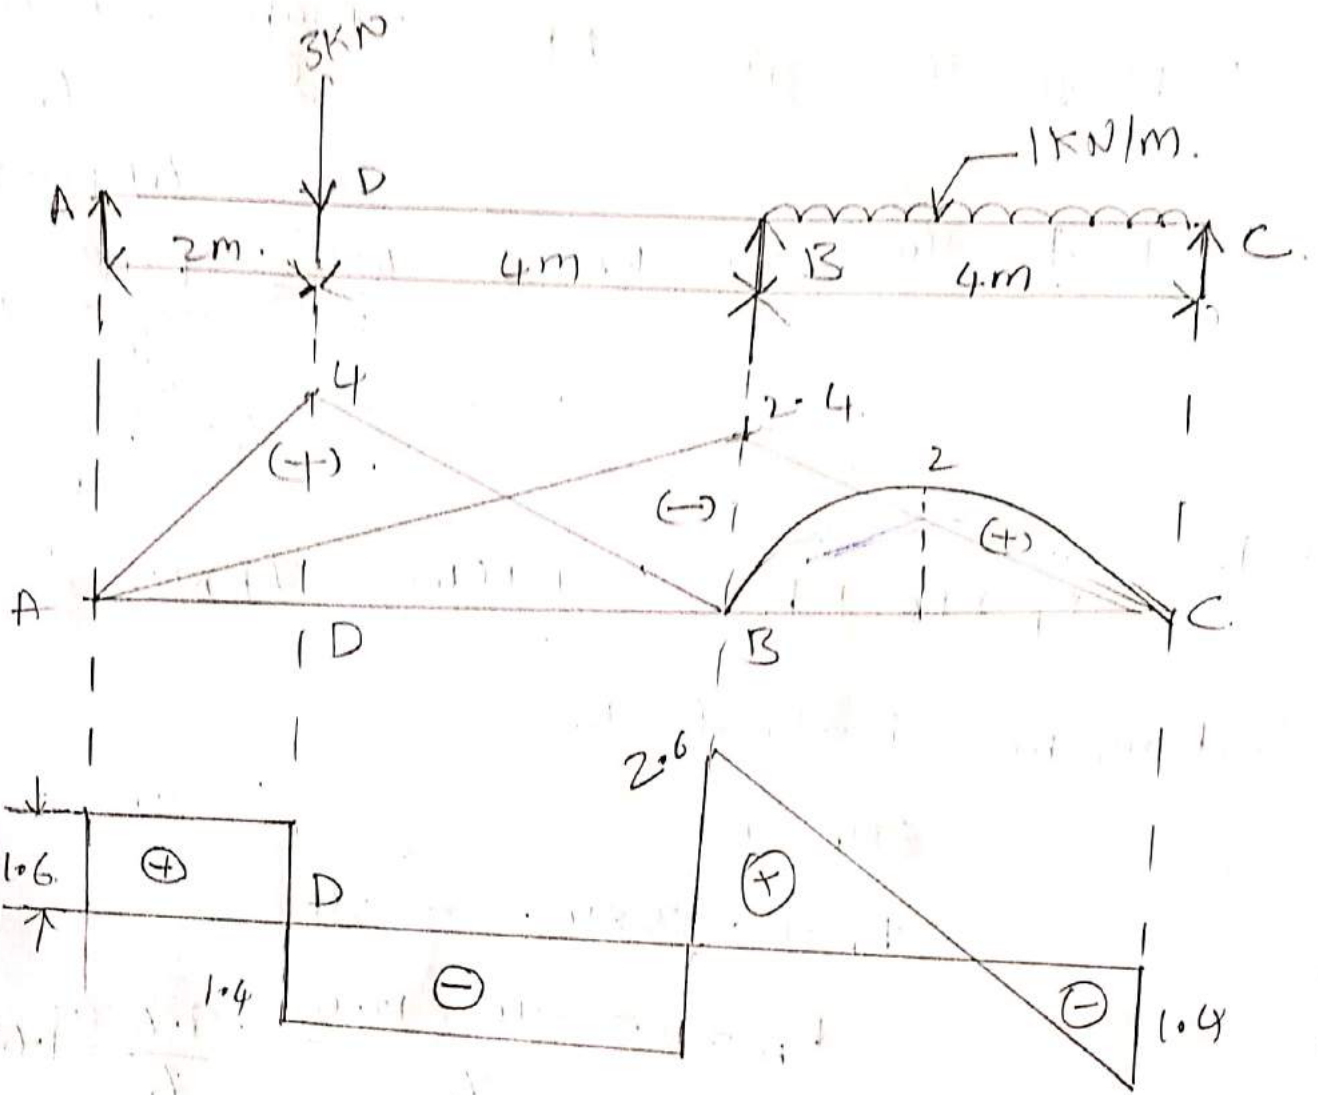 3KN
1KN/M.
A D B C.
2m. 4m. 4.m
4
2.4
(+).
(-)
2
(+)
A D B C.
2.6
1.6. + D +
1.4 - - 1.4